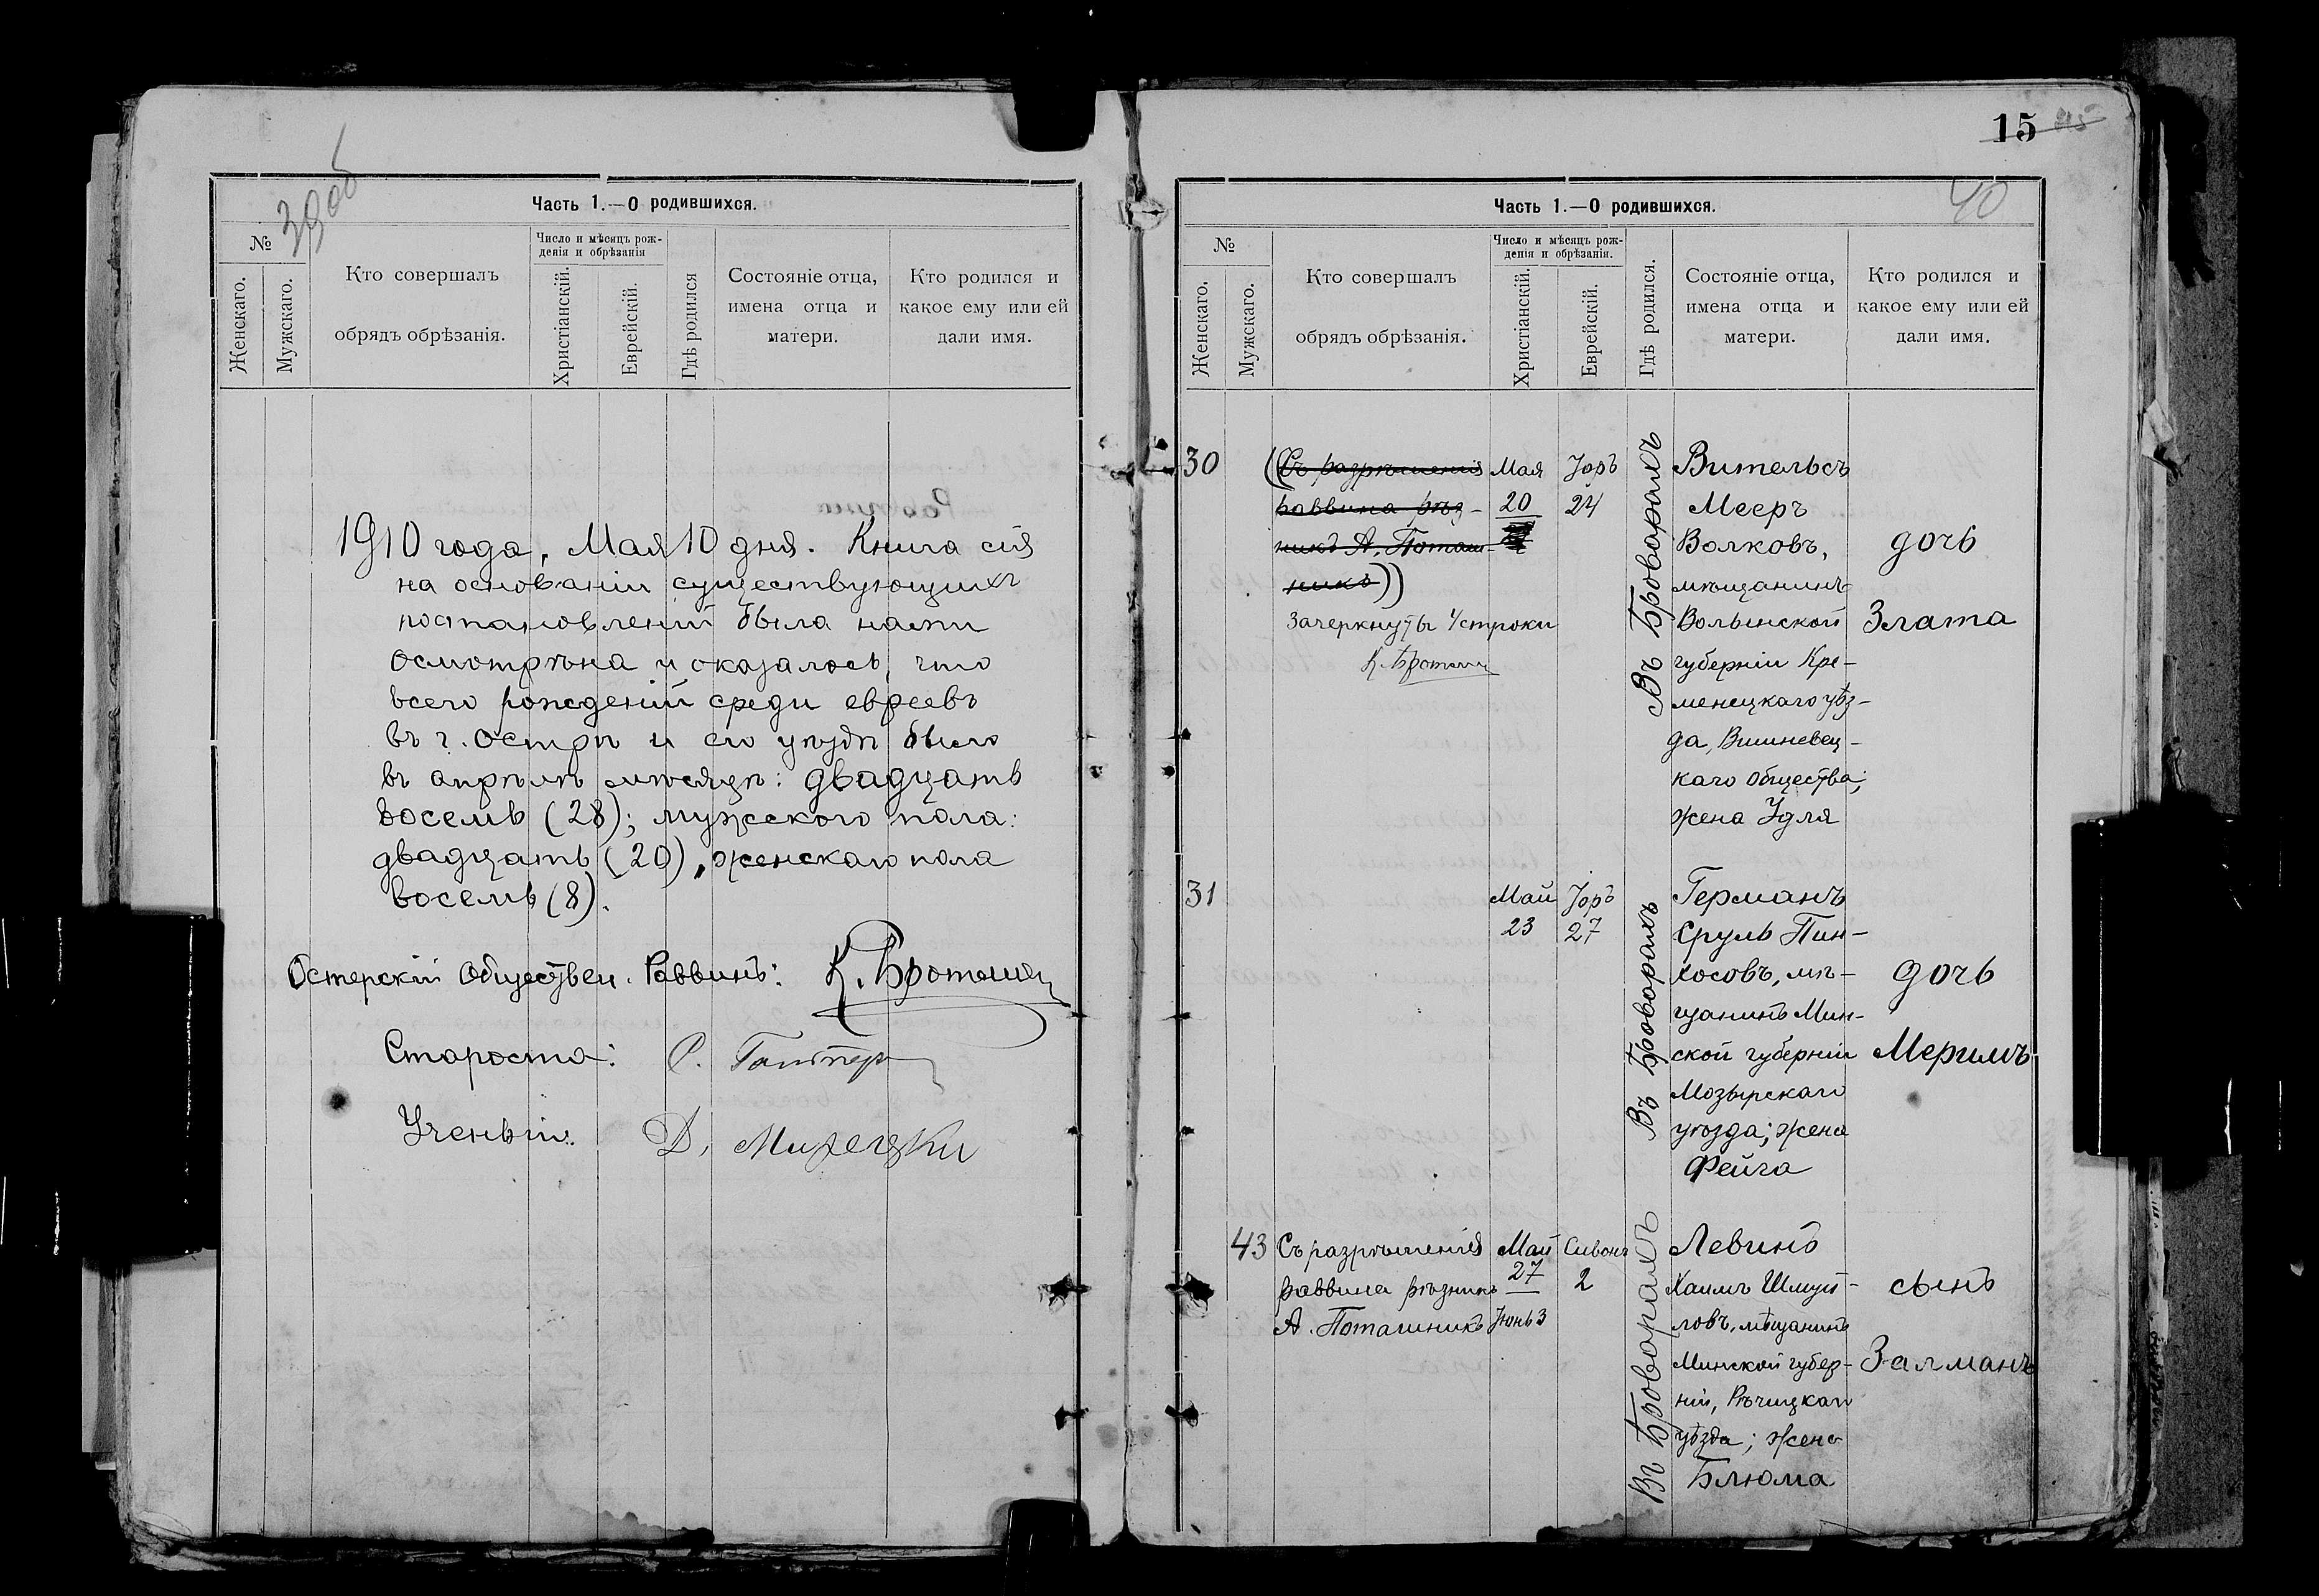 39об
Часть 1.—О родившихся.
№
Женскаго.
Мужскаго.
Кто совершалъ
обрядъ обрѣзанія.
Число и мѣсяцъ рож-
денія и обрѣзанія
Христіанскій.
Еврейскій.
Гдѣ родился
Состояніе отца,
имена отца и
матери.
Кто родился и
какое ему или ей
дали имя.
1910 года, Мая 10 дня. Книга сія
на основаніи существующихъ
постановленій была нами
осмотрѣна и оказалось, что
всего рожденій среди евреевъ
въ г. Острѣ и его уѣздѣ было
въ апрѣлѣ мѣсяцѣ: двадцать
восемь (28); мужского пола:
двадцать (20), женскаго пола
восемь (8).
Остерскій Обществен. Раввинъ: К. Бротман
Староста: Р.
Ученый: Д.
15
40
Часть 1.—О родившихся.
№
Женскаго.
Мужскаго.
Кто совершалъ
обрядъ обрѣзанія.
Число и мѣсяцъ рож-
денія и обрѣзанія.
Христіанскій.
Еврейскій.
Гдѣ родился.
Состояніе отца,
имена отца и
матери.
Кто родился и
какое ему или ей
дали имя.
30
(Съ разрѣшенія
раввина рѣз-
никъ А. Поташ-
никъ))
Зачеркнуты 4 строки
К. Бротман
Мая
20
Іоръ
24
Въ Броварахъ
Вительсъ
Мееръ
Волковъ,
мѣщанинъ
Волынской
губерніи Кре-
менецкаго уѣз-
да, Вишневец-
каго общества;
жена Удля
дочь
Злата
31
Май
23
Іоръ
27
Въ Броварахъ
Германъ
Сруль Пин-
хосовъ, мѣ-
щанинъ Мин-
ской губерніи
Мозырскаго
уѣзда; жена
Фейга
дочь
Меримъ
43
Съ разрѣшенія
раввина рѣзникъ
А. Поташникъ
Май
27
Іюнь 3
Сивонъ
2
Въ Броварахъ
Левинъ
Хаимъ Шмуй-
ловъ, мѣщанинъ
Минской губер-
ніи, Рѣчицкаго
уѣзда; жена
Блюма
сынъ
Залманъ